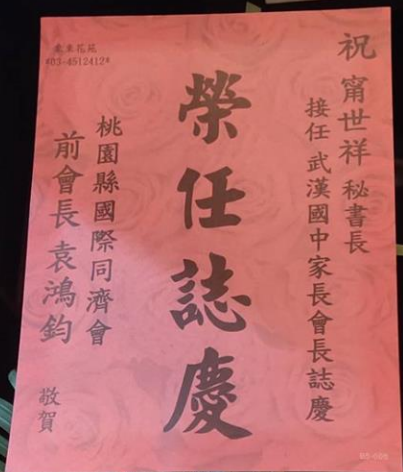 祝 甯世祥 秘書長
接任 武漢國中家長會長誌慶
榮任誌慶
桃園縣國際同濟會
前會長 袁鴻鈞 敬賀
東東花苑
#03-4512412#